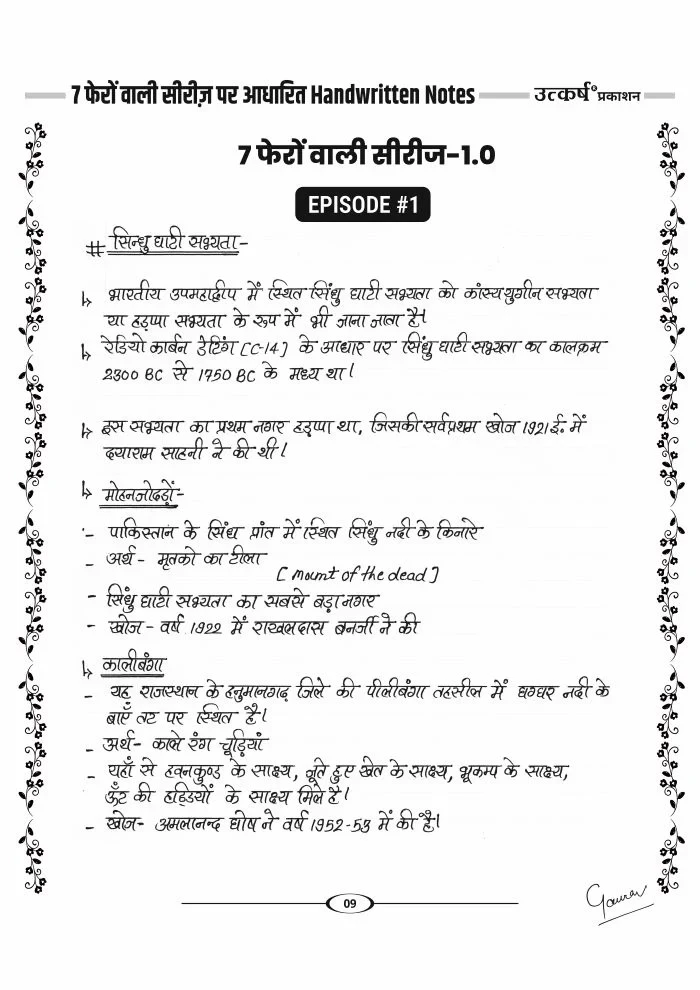 7 फेरों वाली सीरीज़ पर आधारित Handwritten Notes
उत्कर्ष® प्रकाशन
7 फेरों वाली सीरीज-1.0
EPISODE #1
# सिन्धु घाटी सभ्यता -
↳ भारतीय उपमहाद्वीप में स्थित सिंधु घाटी सभ्यता को कांस्ययुगीन सभ्यता
या हड़प्पा सभ्यता के रूप में भी जाना जाता है।
↳ रेडियो कार्बन डेटिंग [C-14] के आधार पर सिंधु घाटी सभ्यता का कालक्रम
2300 BC से 1750 BC के मध्य था।
↳ इस सभ्यता का प्रथम नगर हड़प्पा था, जिसकी सर्वप्रथम खोज 1921 ई. में
दयाराम साहनी ने की थी।
↳ मोहनजोदड़ों -
- पाकिस्तान के सिंध प्रांत में स्थित सिंधु नदी के किनारे
- अर्थ - मृतको का टीला
[mount of the dead]
- सिंधु घाटी सभ्यता का सबसे बड़ा नगर
- खोज - वर्ष 1922 में राखलदास बनर्जी ने की
↳ कालीबंगा
- यह राजस्थान के हनुमानगढ़ जिले की पीलीबंगा तहसील में घग्घर नदी के
बाएँ तट पर स्थित है।
- अर्थ - काले रंग चूड़ियां
- यहाँ से हवनकुण्ड के साक्ष्य, जूते हुए खेत के साक्ष्य, भूकम्प के साक्ष्य,
ऊँट की हड्डियों के साक्ष्य मिले है।
- खोज - अमलानन्द घोष ने वर्ष 1952-53 में की है।
09
Gaurav